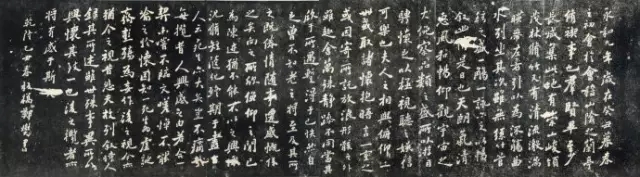 永和九年歲在癸丑暮春
初會于會稽山陰之蘭亭
脩禊事也羣賢畢至少
長咸集此地有崇山峻領
茂林脩竹又有清流激湍
暎帶左右引以為流觴曲
水列坐其次雖無絲竹管
弦之盛一觴一詠亦足以暢
敘幽情是日也天朗氣清
惠風和暢仰觀宇宙之
大俯察品類之盛所以遊目
騁懷足以極視聽之娛信
可樂也夫人之相與俯仰一
世或取諸懷抱晤言一室之內
或因寄所託放浪形骸之外
雖趣舍萬殊靜躁不同當其
欣于所遇暫得于己快然自
足不知老之將至及其所
之既倦情隨事遷感慨係
之矣向之所欣俯仰之間已
為陳迹猶不能不以之興懷
況脩短隨化終期于盡古
人云死生亦大矣豈不痛哉
每攬昔人興感之由若合一
契未嘗不臨文嗟悼不能
喻之於懷固知一死生為虛誕
齊彭殤為妄作後之視今亦
猶今之視昔悲夫故列敘時人
錄其所述雖世殊事異所以
興懷其致一也後之攬者亦
將有感于斯文
乾隆春板橋鄭燮書